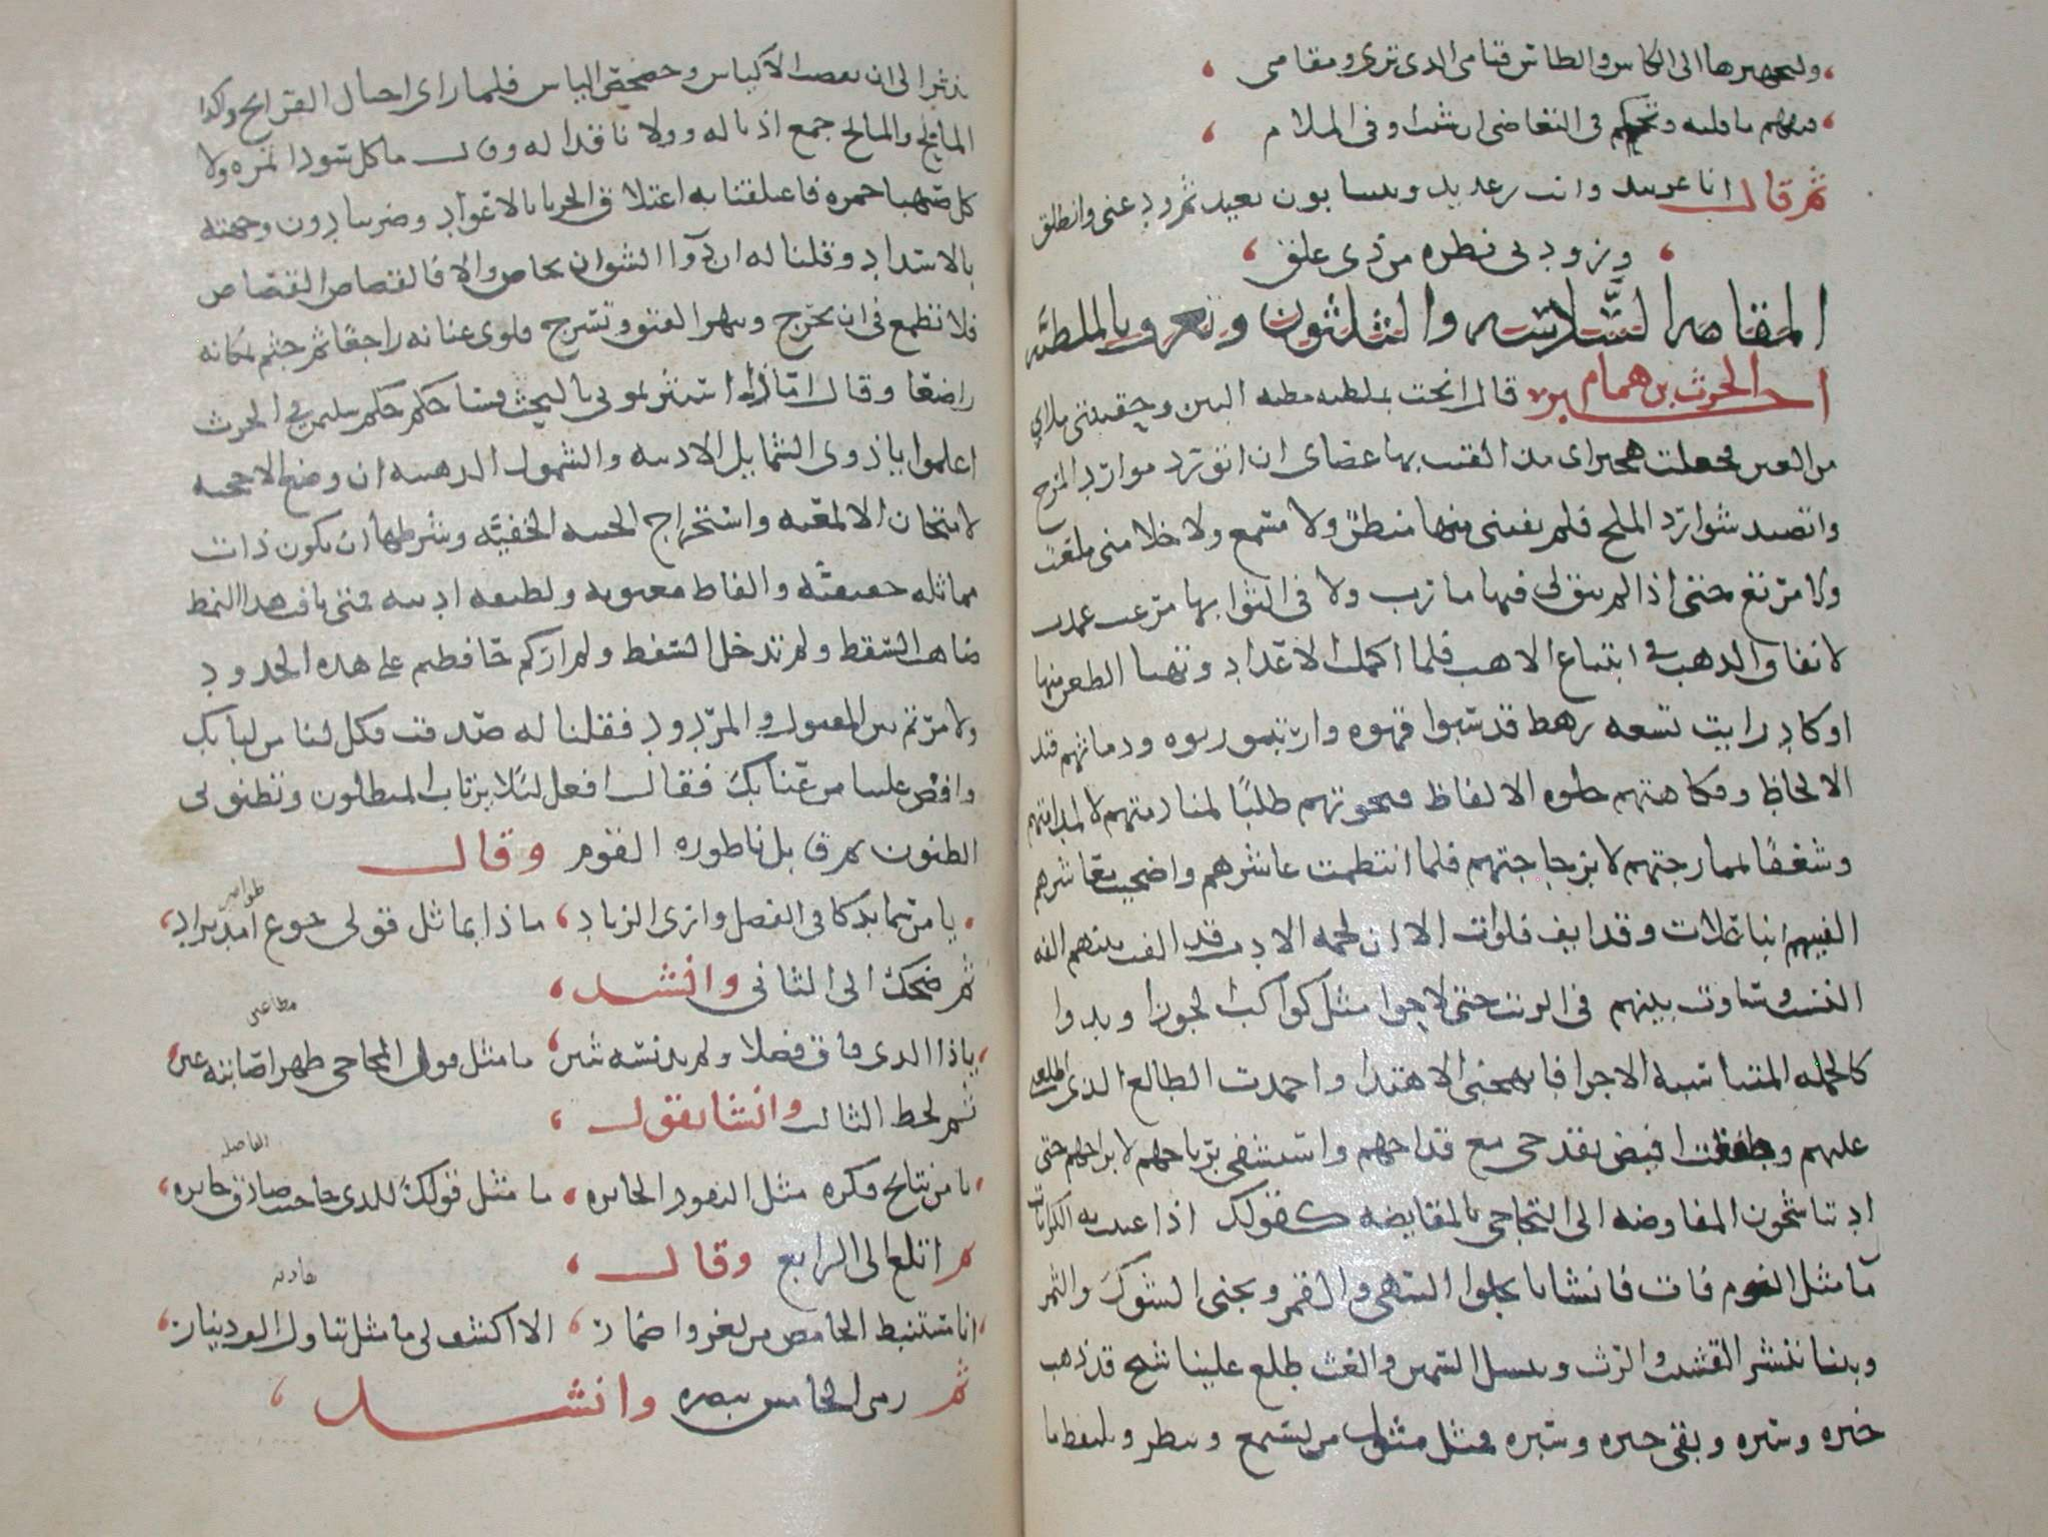 ولتجهيزها الى الكاس والطاس قيامى الذى ترى ومقامى
فتفهم ما قلته وتحكم فى التغاضى ان شئت وفى الملام
ثم قال انا عربيد وانت رعديد وبيننا بون بعيد ثم ودعنى وانطلق
وزودنى نظره من ذى علق
المقامه السادسه والثلثون وتعرف بالملطيه
اخبر الحرث بن همام قال انخت بملطيه مطيه البين وحقيبتى ملاى
من العين فجعلت هجيراى مذ القيت بها عصاى ان اتورد موارد المرح
واتصيد شوارد الملح فلم يفتنى بها منظر ولا مسمع ولا خلا منى ملعب
ولا مرتع حتى اذا لم يبق لى فيها مارب ولا فى الثوا بها مرغب عمدت
لانفاق الذهب فى ابتياع الاهب فلما اكملت الاعداد وتهيا الظعن منها
او كاد رايت تسعه رهط قد سبوا قهوه وارتبوا ربوه ودماثتهم قيد
الالحاظ وفكاهتهم حلوه الالفاظ فنحوتهم طلبًا لمنادمتهم لا لمدامتهم
وشغفًا لممازجتهم لا بزجاجتهم فلما انتظمت عاشرهم واضحيت معاشرهم
الفيتهم ابنا علات وقدايف فلوات الا ان لحمه الادب قد الفت بينهم الفه
النسب وساوت بينهم فى الرتب حتى لاحوا مثل كواكب الجوزا وبدوا
كالجمله المتناسبه الاجزا فابهجنى الاهتدا واحمدت الطالع الذى اطلعنى
عليهم وطفقت افيض بقدحى مع قداحهم واستشفى برياحهم لا براحهم حتى
ادتنا شجون المفاوضه الى التحاجى بالمقايضه كقولك اذا عنيت به الكرامات
ما مثل النوم فات فانشانا نجلوا السهى والقمر ونجنى الشوك والثمر
وبينا ننشر القشيب والرث وننسل السمين والغث طلع علينا شيخ قد ذهب
حبره وسبره وبقى خبره وسبره فمثل مثول من يسمع وينظر ويلتقط ما
ينثر الى ان نفضت الاكياس وحصحص الياس فلما راى اجبال القرايح واكدا
الماتح والمايح جمع اذياله وولانا قذاله وقال ما كل سودا تمره ولا
كل صهبا خمره فاعتلقنا به اعتلاق الحربا بالاعواد وضربنا دون وجهته
بالاسداد وقلنا له ان دوا الشق ان يحاص والا فالقصاص القصاص
فلا تطمع فى ان تجرح وتنهر الفتق وتسرح فلوى عنانه راجعًا ثم جثم مكانه
راضيًا وقال اما اذا استثرتمونى بالبحث فساحكم حكم سليمن فى الحرث
اعلموا يا ذوى الشمايل الادبيه والشمول الذهبيه ان وضع الاحجيه
لامتحان الالمعيه واستخراج الخبيه الخفيه وشرطها ان تكون ذات
مماثله حقيقيه والفاظ معنويه ولطيفه ادبيه فمتى نافت هذا النمط
ضاهت السقط ولم تدخل السفط ولم اركم حافظتم على هذه الحدود
ولا مزتم بين المقبول والمردود فقلنا له صدقت فكل لنا من لبابك
وافض علينا من عبابك فقال افعل لئلا يرتاب المبطلون وتظنوا بى
الظنون ثم قابل ناظوره القوم وقال
طوامير
يا من سما بذكا فى الفضل وارى الزناد ماذا يماثل قولى جوع امد بزاد
ثم ضحك الى الثانى وانشد
مطاعين
يا ذا الذى فاق فضلا ولم يدنسه شين ما مثل قول المحاجى ظهر اصابته عين
ثم لحظ الثالث وانشا يقول
الفاصله
يا من نتايج فكره مثل النقود الجايزه ما مثل قولك للذى حاجيت صادف جايزه
ثم اتلع الى الرابع وقال
هاديه
ايا مستنبط الغامض من لغز واضمار الا اكشف لى ما مثل تناول الف دينار
ثم رمى الخامس ببصره وانشد